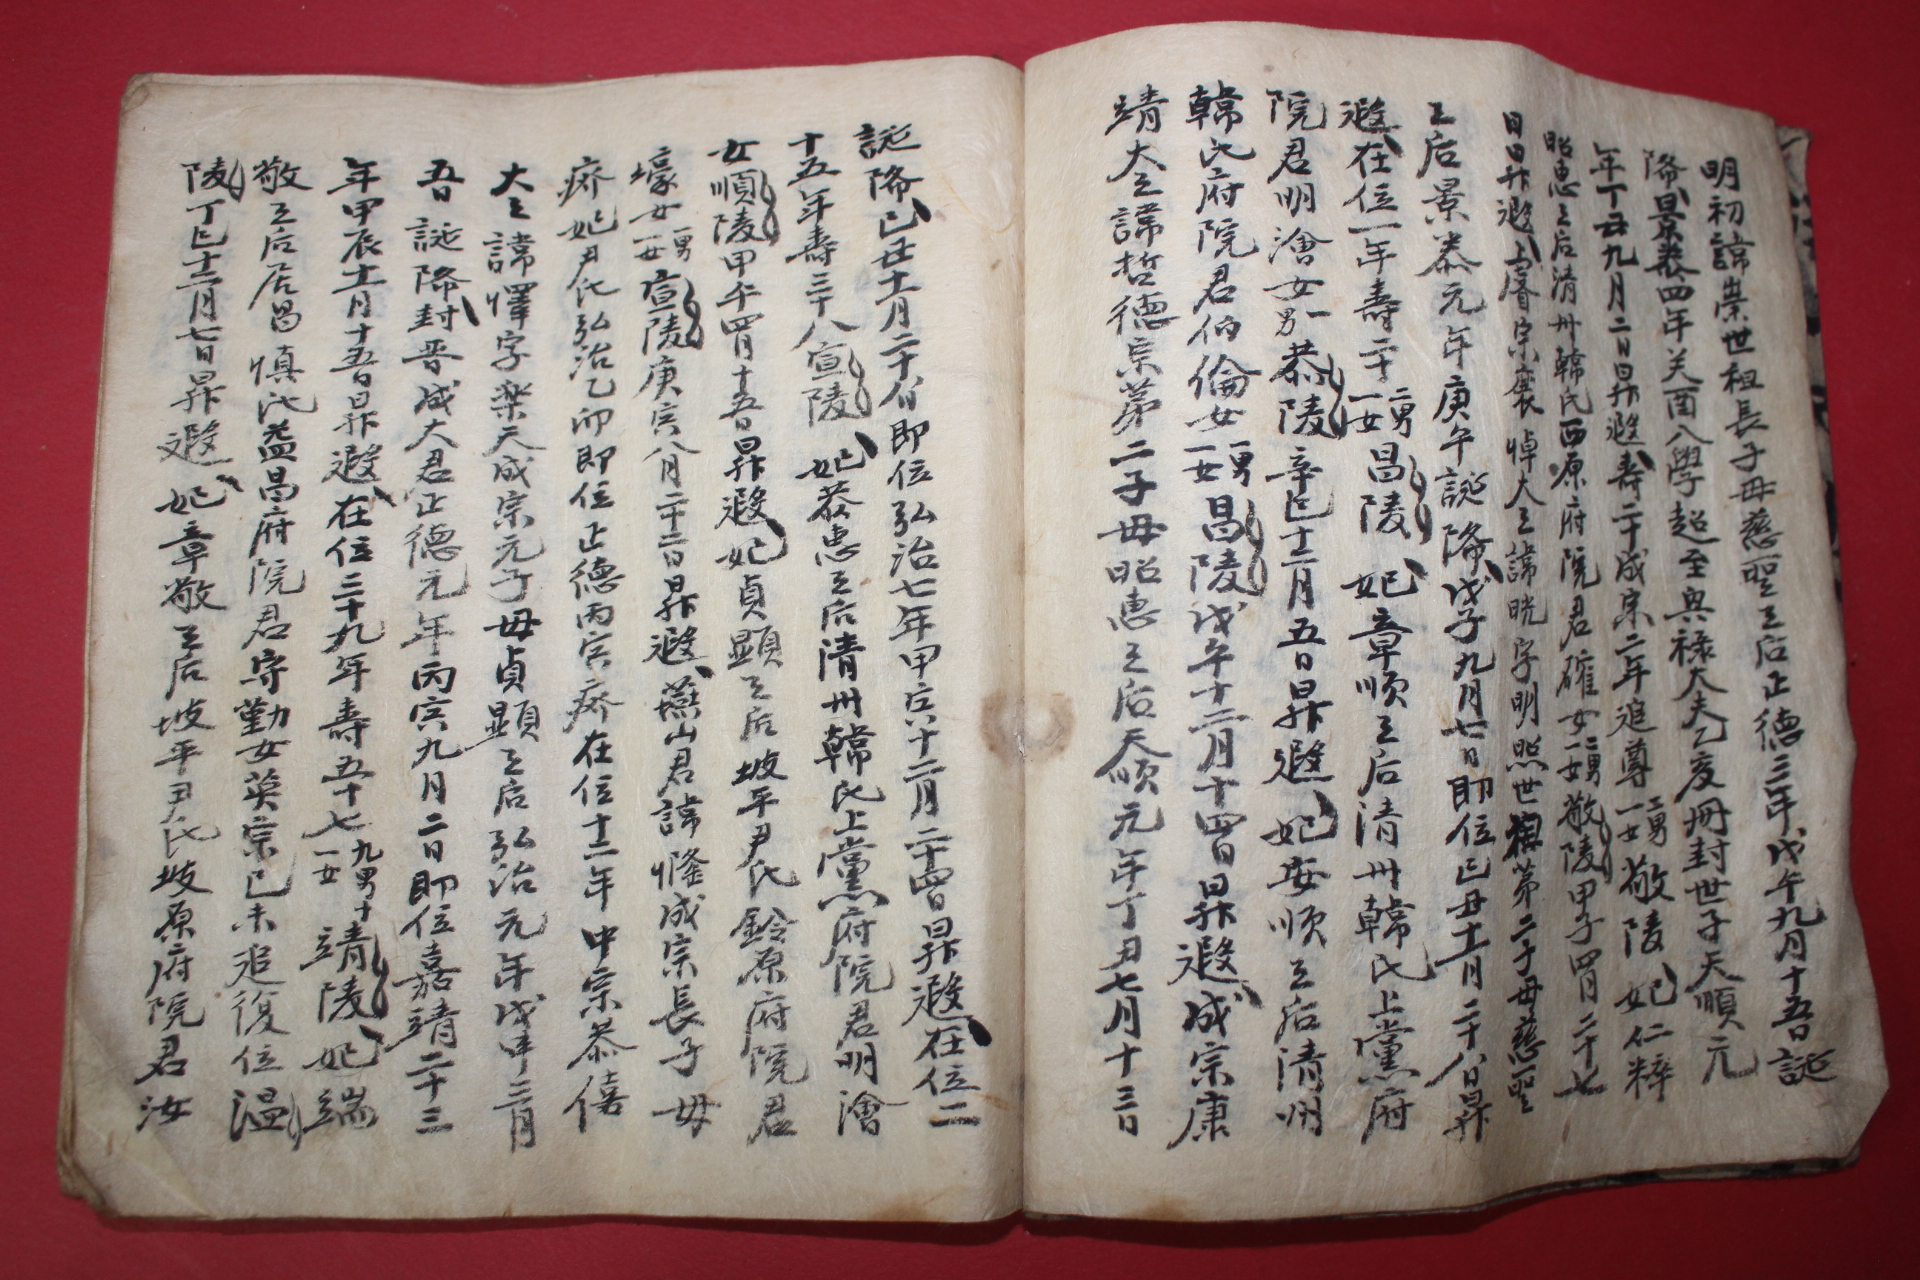 明初諱崇世祖長子母慈聖王后正德三年戊午九月十五日誕
降景泰四年癸酉八學超至興祿大夫乙亥冊封世子天順元
年丁丑九月二日昇遐壽二十成宗二年追尊二男一女敬陵妃仁粹
昭惠王后清州韓氏西原府院君確女二男一女敬陵甲子四月二十七
日昇遐睿宗襄悼大王諱晄字明照世祖第二子母慈聖
王后景泰元年庚午誕降戊子九月七日即位己丑十一月二十八日昇
遐在位一年壽二十二男一女昌陵妃章順王后清州韓氏上黨府
院君明澮女一男恭陵辛巳十二月五日昇遐妃安順王后清州
韓氏府院君伯倫女一男一女昌陵戊午十二月十四日昇遐成宗康
靖大王諱哲德宗第二子母昭惠王后天順元年丁丑七月十三日
誕降己丑十一月二十八日即位弘治七年甲寅十二月二十四日昇遐在位二
十五年壽三十八宣陵妃恭惠王后清州韓氏上黨府院君明澮
女順陵甲午四月十五日昇遐妃貞顯王后坡平尹氏鈴原府院君
壕女一男一女宣陵庚寅八月二十二日昇遐燕山君諱㦕成宗長子母
廢妃尹氏弘治乙卯即位正德丙寅廢在位十二年中宗恭僖
大王諱懌字樂天成宗元子母貞顯王后弘治元年戊申三月
五日誕降封晋成大君正德元年丙寅九月二日即位嘉靖二十三
年甲辰十一月十五日昇遐在位三十九年壽五十七九男十一女靖陵妃端
敬王后居昌慎氏益昌府院君守勤女英宗己未追復位溫
陵丁巳十二月七日昇遐妃章敬王后坡平尹氏坡原府院君汝